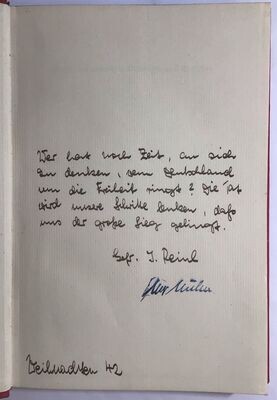 Wer hat noch Zeit, an sich
zu denken, wenn Deutschland
um die Freiheit ringt? Die Tat
wird unsere Schritte lenken, daß
uns der große Sieg gelingt.
Gefr. J. Reinl
Müller
Weihnachten 42